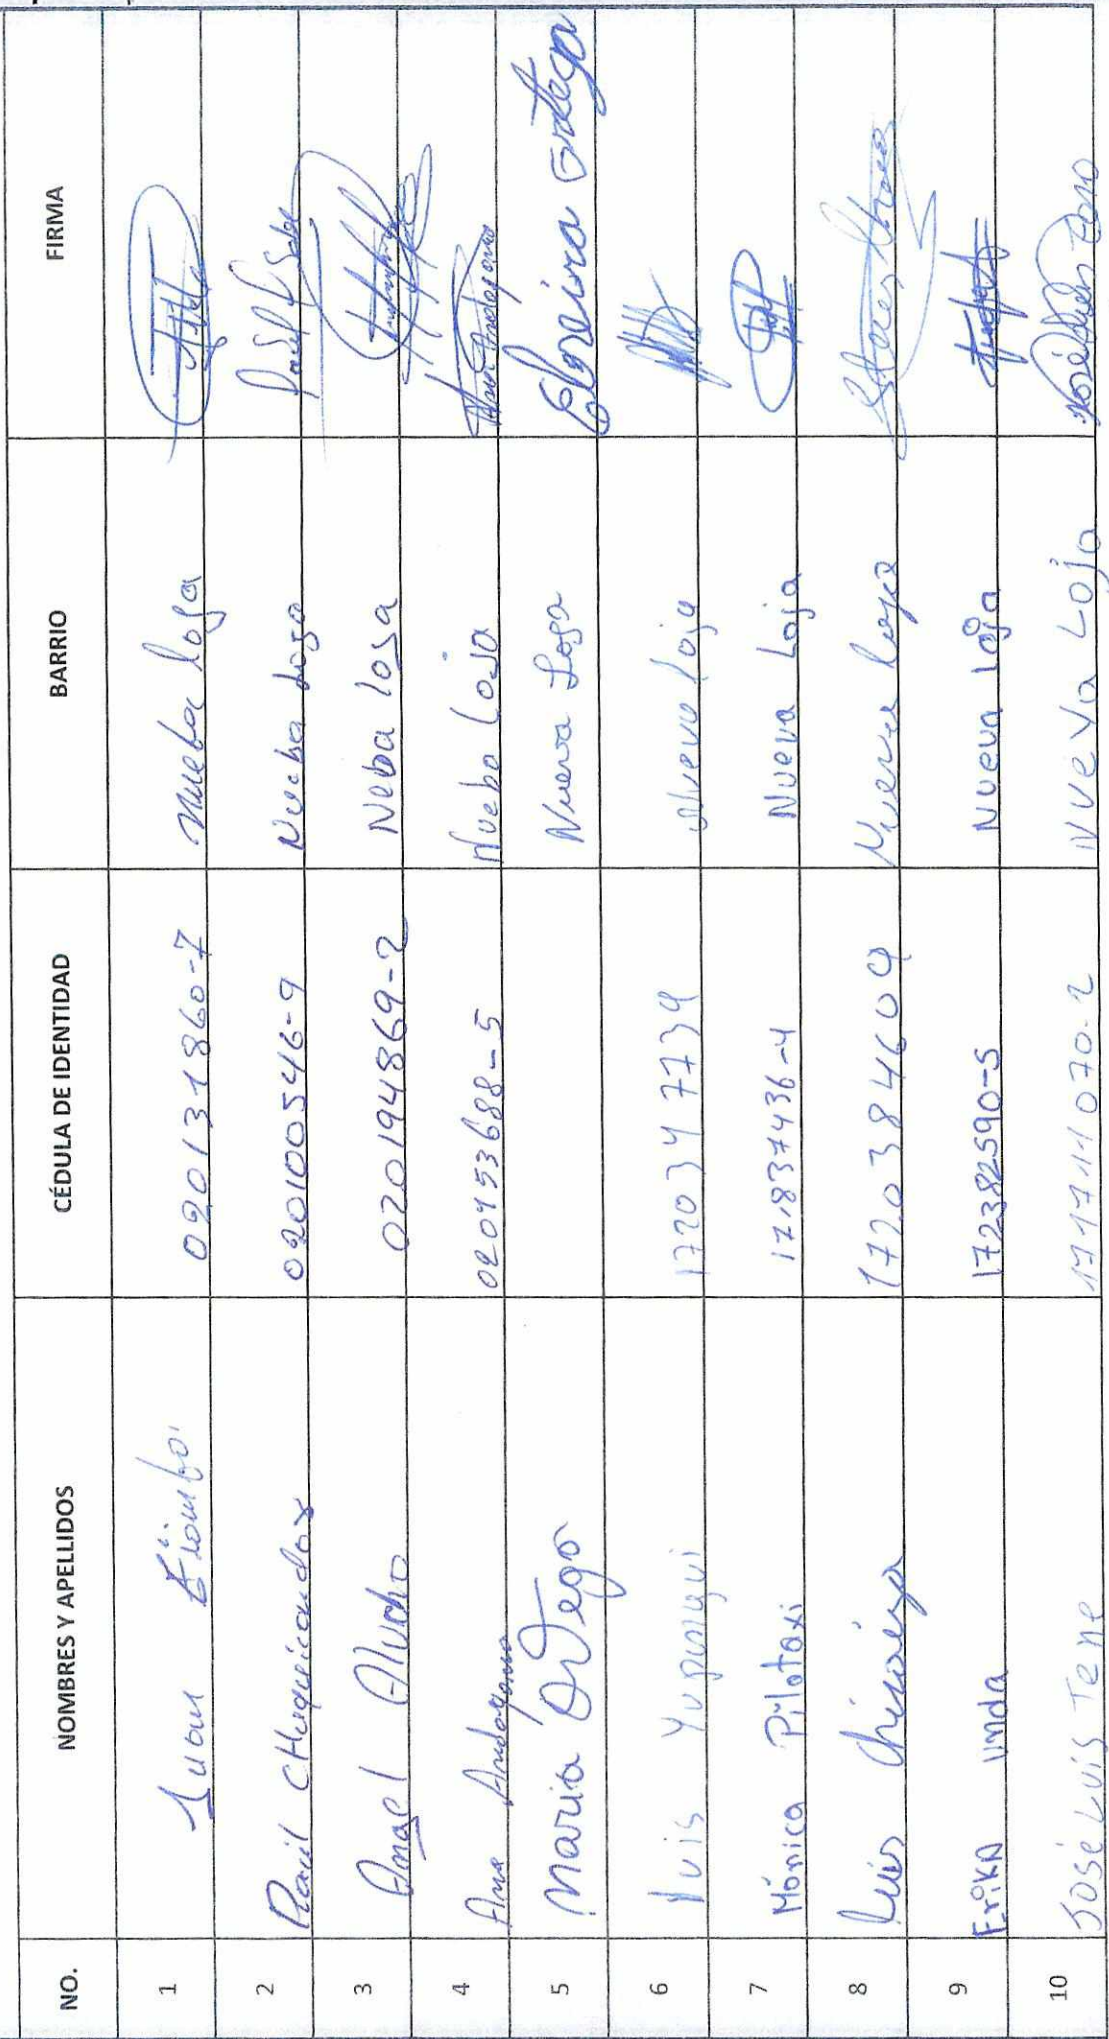 NO. NOMBRES Y APELLIDOS CÉDULA DE IDENTIDAD BARRIO FIRMA
1 Juan 020131860-7 Nueba loga
2 Raúl CHuquicondor 020100546-9 Nueba Loga
3 Angel Alucho 020194869-2 Neba losa
4 Ana Andagana 020153688-5 Nueba Loja
5 Maria Ortega Nueva Loga Elveira Ortega
6 Luis Yupangui 1720347739 Nueva loja
7 Mónica Pilataxi 171837436-4 Nueva Loja
8 Luis 1720384609 Nueva Loja
9 Erika Unda 172382590-5 Nueva loja
10 José Luis Tene 171711070-2 Nueva Loja